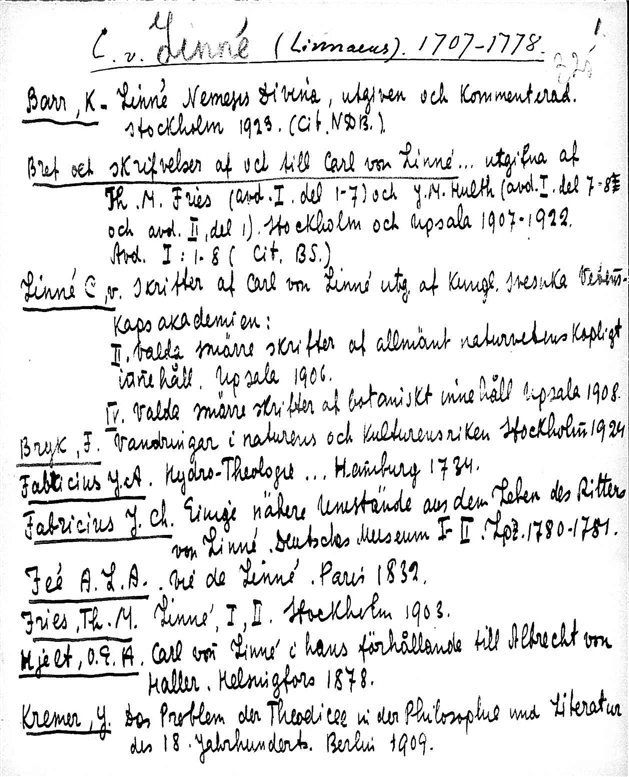 1.
C. v. Linné (Linnaeus). 1707-1778.
Barr, K- Linné Nemesis Divina, utgiven och Kommenterad.
Stockholm 1923. (Cit. NDB.).
Bref och skrifvelser af och till Carl von Linné... utgifna af
Th. M. Fries (avd. I. del 1-7) och J. M. Hulth (avd. I. del 7-8
och avd. II, del 1). Stockholm och Upsala 1907-1922.
Avd. I: 1-8 (Cit. BS.)
Linné C. v. Skrifter af Carl von Linné utg. af Kungl. Svenska Vetens-
Kapsakademien:
II. Valda smärre skrifter af allmänt naturvetenskapligt
innehåll. Upsala 1906.
IV. Valda smärre skrifter af botaniskt innehåll Upsala 1908.
Bryk, F. Vandringar i naturens och Kulturens riken Stockholm 1924
Fabricius J. A. Hydro-Theologie ... Hamburg 1734.
Fabricius J. Ch. Einige nähere Umstände aus dem Leben des Ritters
von Linné. Deutsches Museum I-II. Lpz. 1780-1781.
Feé A. L. A. Vie de Linné. Paris 1832.
Fries, Th. M. Linné, I, II. Stockholm 1903.
Hjelt, O. E. A. Carl von Linné i hans förhållande till Albrecht von
Haller. Helsingfors 1878.
Kremer, J. Das Problem der Theodicee in der Philosophie und Literatur
des 18. Jahrhunderts. Berlin 1909.